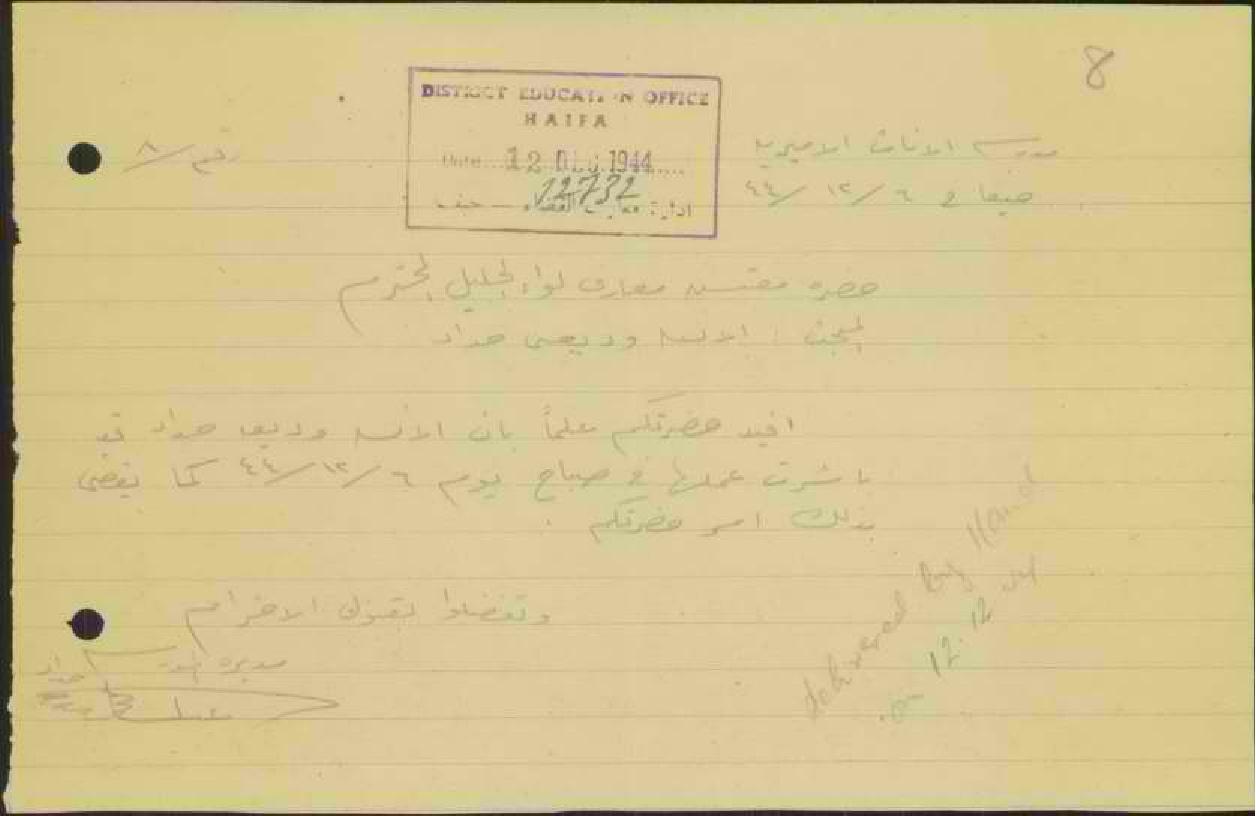 8
DISTRICT EDUCATION OFFICE
HAIFA
Date 12 DEC 1944
12732
ادارة معارف القضاء — حيفا
مدرسة الاناث الاميرية
رقم / ٨
حيفا في ٦ / ١٢ / ٤٤
حضرة مفتش معارف لواء الجليل المحترم
المبحث : الانسة وديعة حداد
افيد حضرتكم علماً بان الانسة وديعة حداد قد
باشرت عملها في صباح يوم ٦ / ١٢ / ٤٤ كما يقضي
بذلك امر حضرتكم .
وتفضلوا بقبول الاحترام
مديرة المدرسة
حداد
delivered by Hand
on 12.12.44